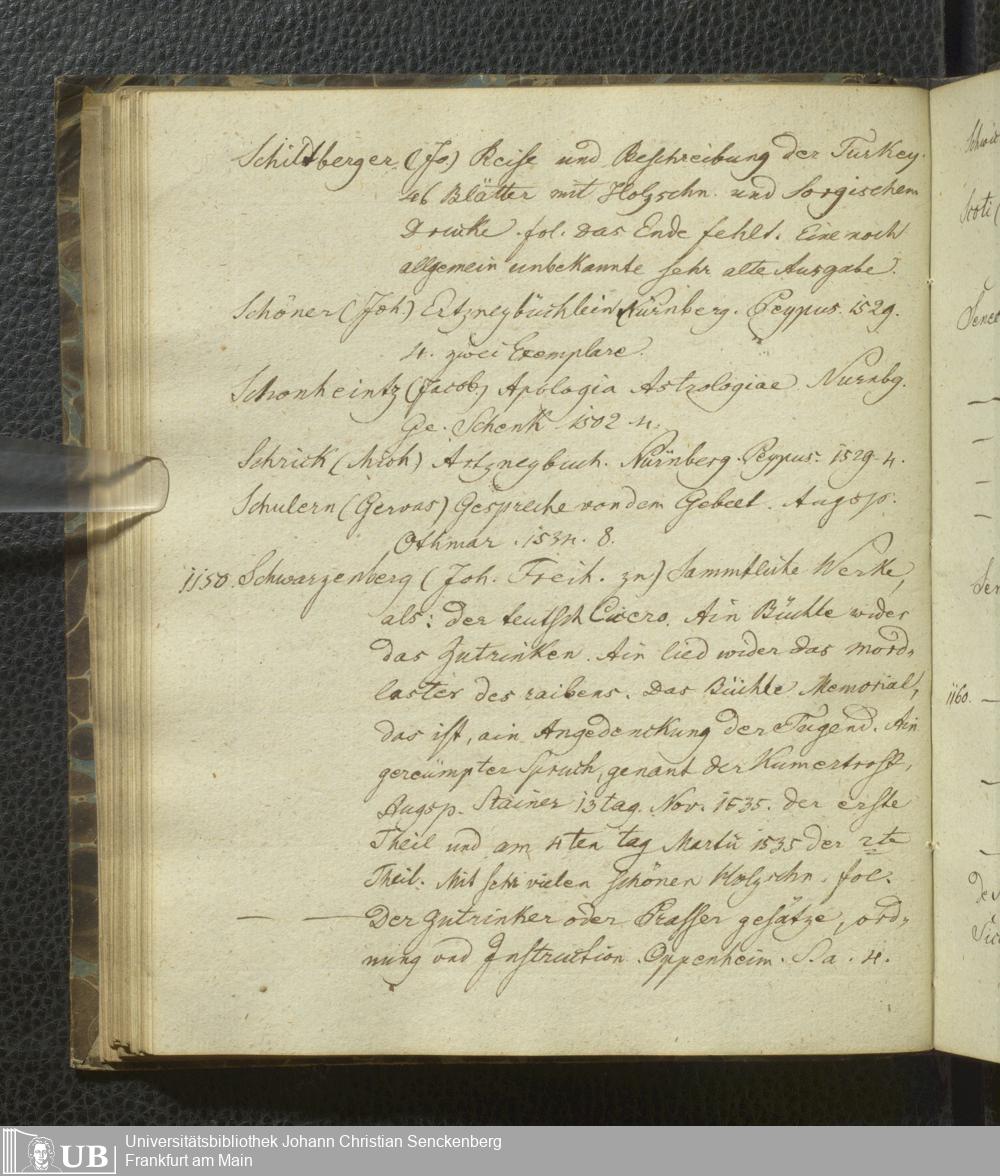 Schiltberger (Jo) Reise und Beschreibung der Turkey.
46 Blätter mit Holzschn. und Sorgischem
Drucke. fol. das Ende fehlt. Eine noch
allgemein unbekannte sehr alte Ausgabe.
Schöner (Joh.) Ertzneybüchlein Nürnberg. Peypus. 1529.
4. zwei Exemplare.
Schonheintz (Jacob) Apologia Astrologiae. Nurnbg.
Ge. Schenk 1502 4.
Schrick (Mich) Artzneybuch. Nürnberg. Peypus. 1529. 4.
Schulern (Gervas) Gespreche von dem Gebeet. Augsp.
Othmar. 1534. 8.
1150. Schwarzenberg (Joh. Freih. zn) Sammtliche Werke,
als: der teutsch Cicero. Ain Büchle wider
das Zutrinken. Ain lied wider das mord-
laster des raibens. Das Büchle Memorial,
das ist, ain Angedenckung der Tugend. Ain
gereümpter Spruch, genant der Kumertrost,
Augsp. Stainer 13 tag. Nov. 1535. der erste
Theil und am 4ten tag Martii 1535 der 2te
Theil. Mit sehr vielen schönen Holzschn. fol.
— — Der Zutrinker oder Prasser gesätze, ord-
nung vnd Instruction. Oppenheim. S. a. 4.
Scoti (
1160. —
UB
Universitätsbibliothek Johann Christian Senckenberg
Frankfurt am Main